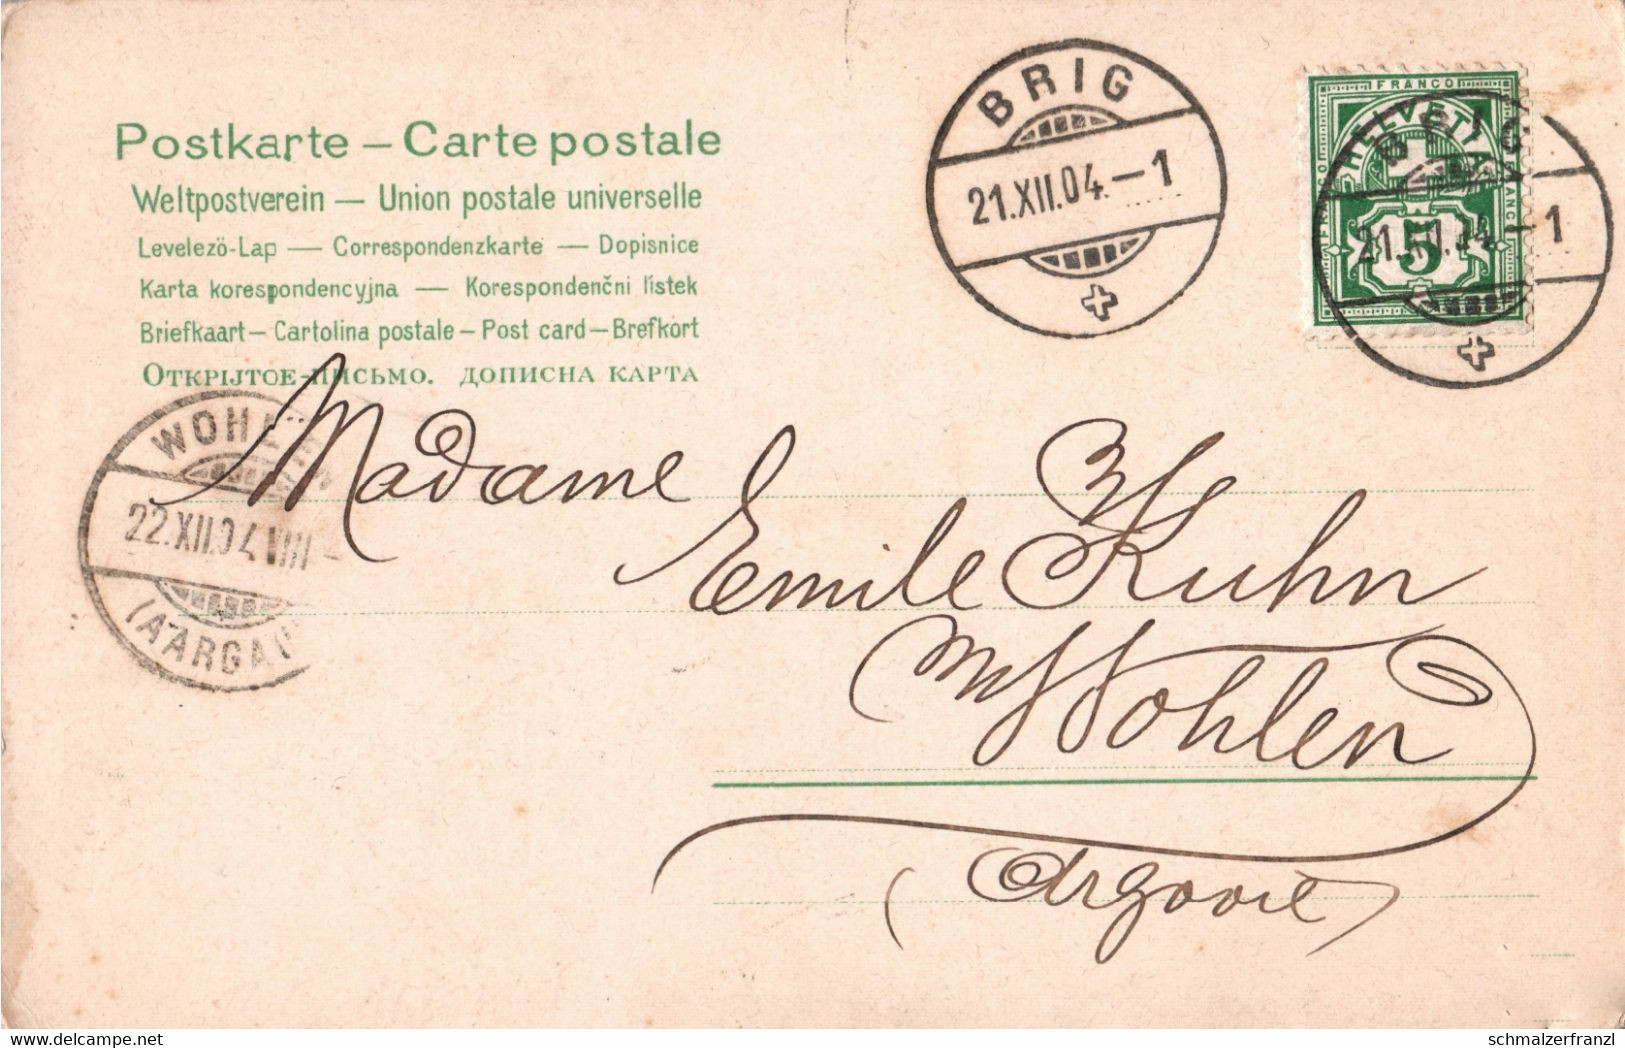 Postkarte – Carte postale
Weltpostverein — Union postale universelle
Levelezö-Lap — Correspondenzkarte — Dopisnice
Karta korespondencyjna — Korespondenčni lístek
Briefkaart – Cartolina postale – Post card – Brefkort
ОТКРІЈТОЕ-ПИСЬМО. ДОПИСНА КАРТА
BRIG
21.XII.04.–1
FRANCO
HELVETIA
FRANCO
5
21.XII.04.–1
WOHLEN
22.XII.04 VIII –
(AARGAU
Madame
Emile Kuhn
Wohlen
(Argovie)
delcampe.net
schmalzerfranzl